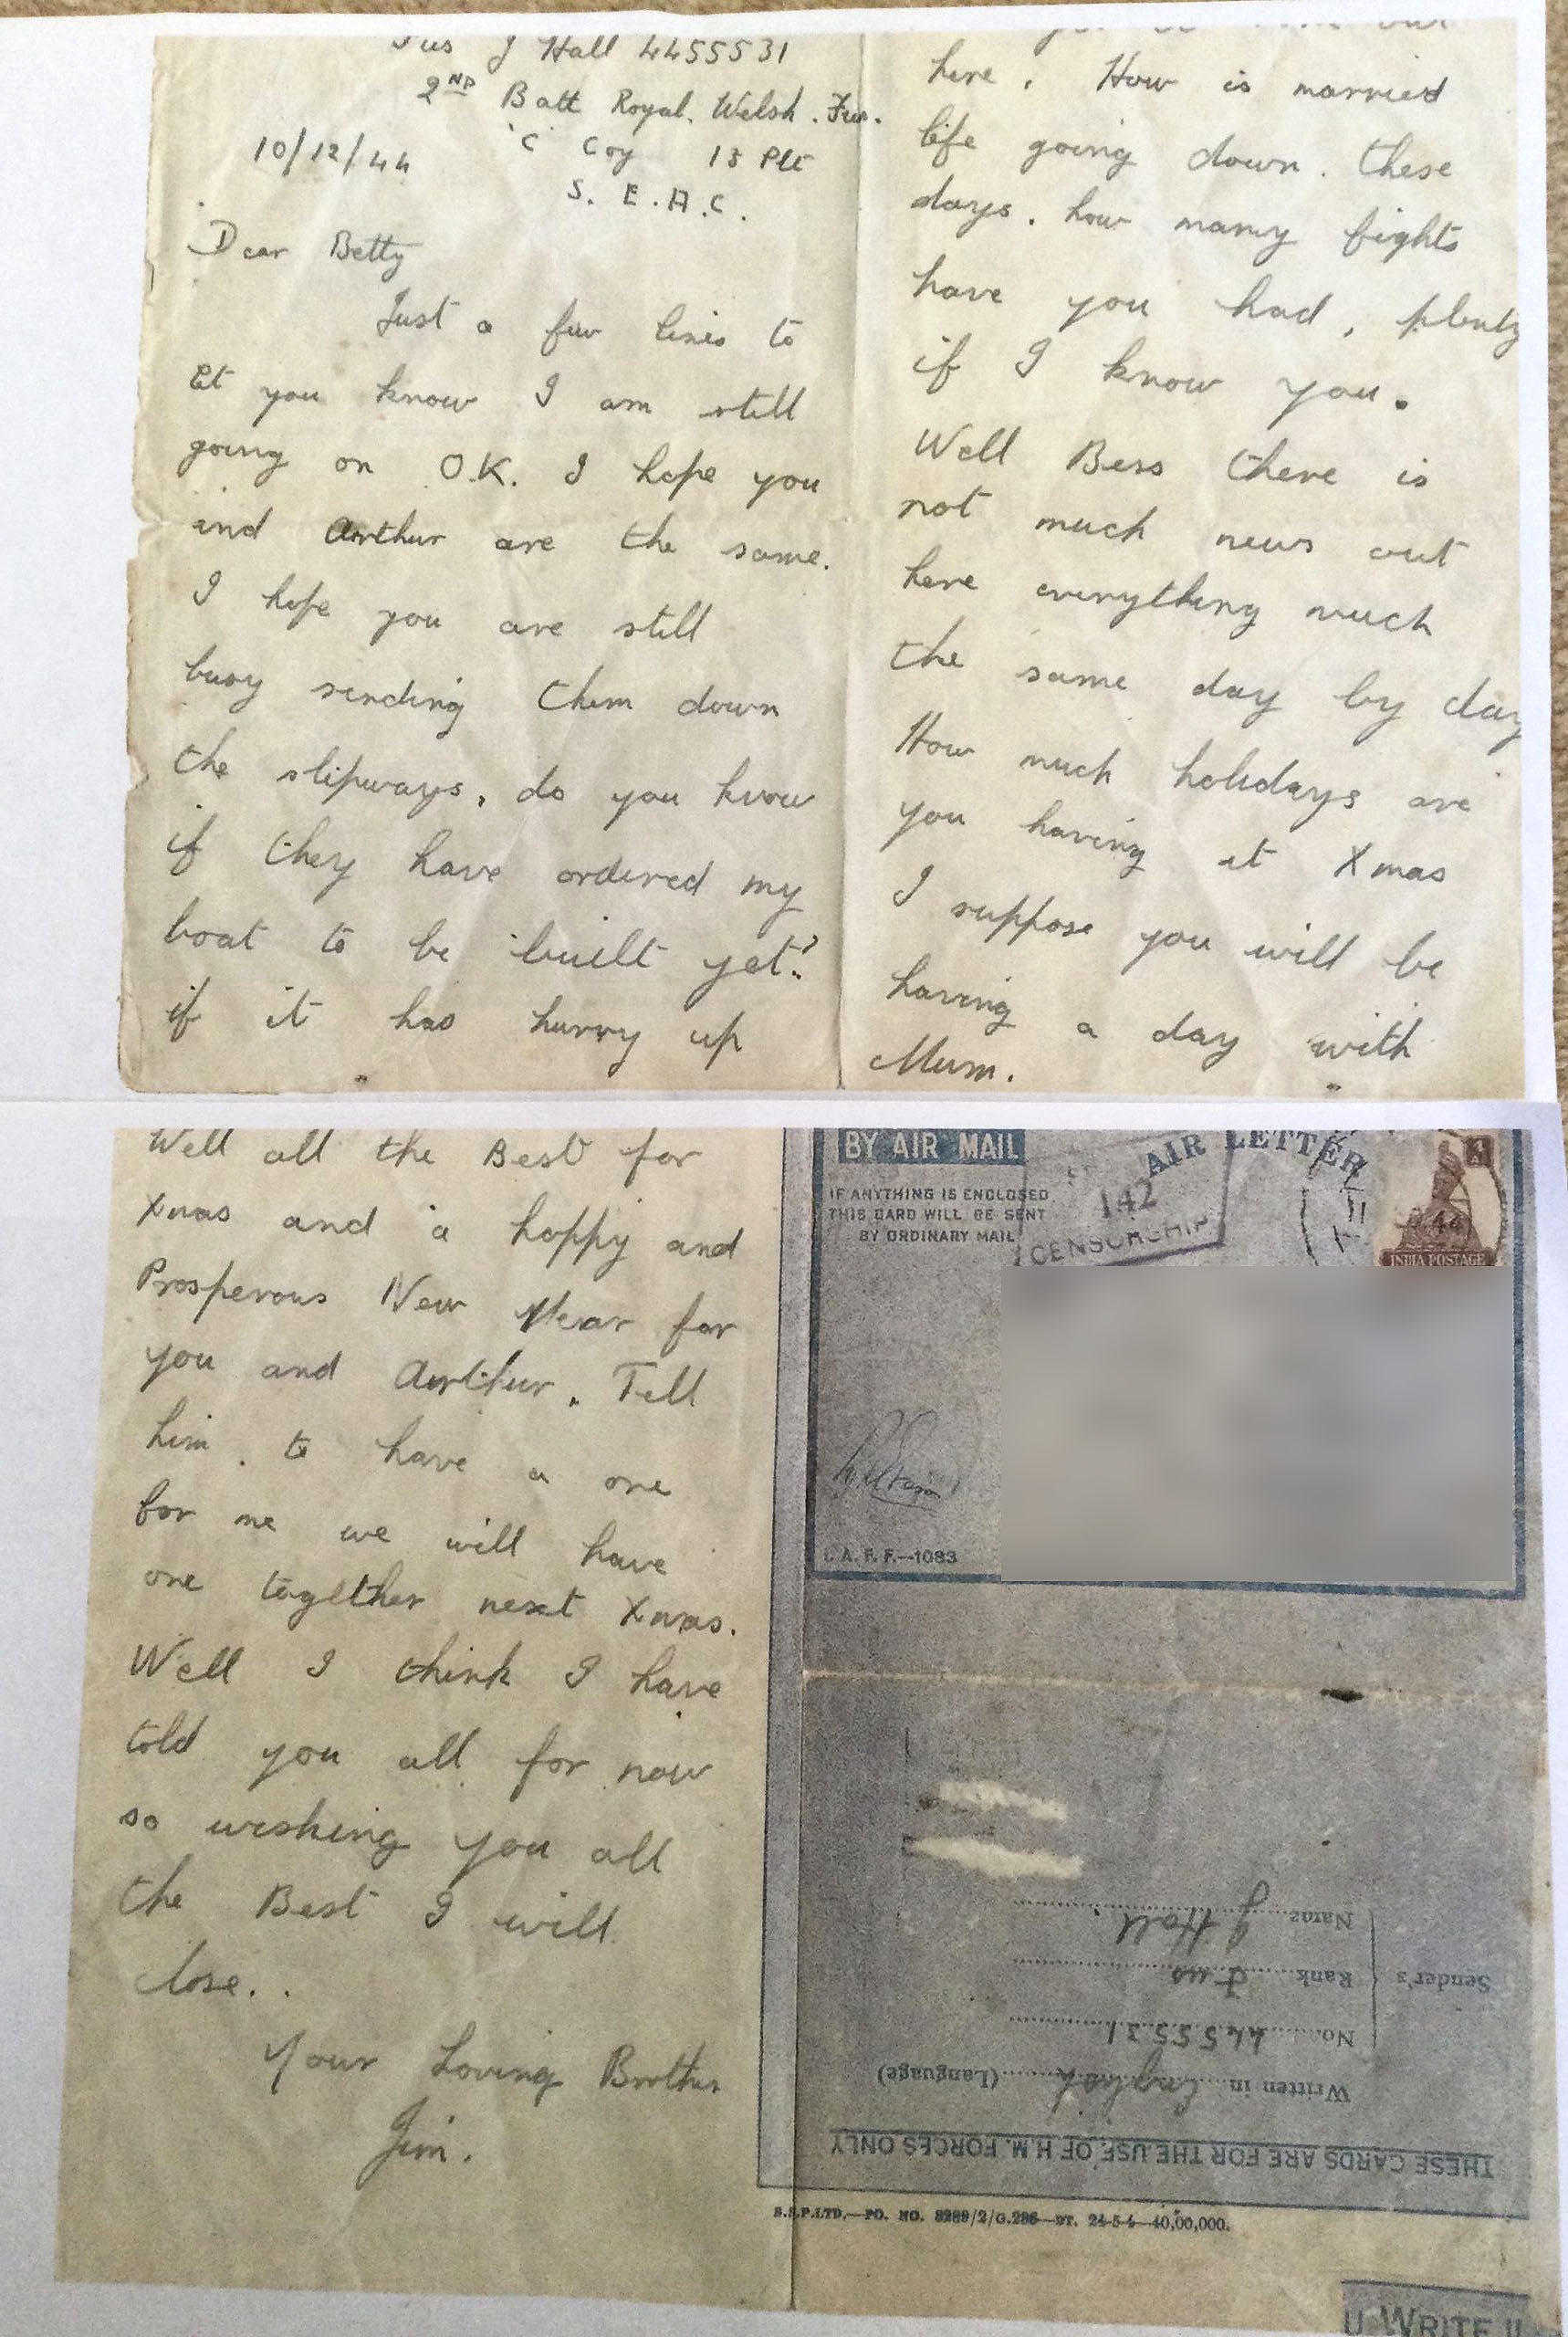 Fus J Hall 4455531
2ND Batt Royal. Welsh. Fus.
10/12/44
'C' Coy 13 Plt
S. E. A. C.
Dear Betty
Just a few lines to
let you know I am still
going on O.K. I hope you
and Arthur are the same.
I hope you are still
busy sending them down
the slipways, do you know
if they have ordered my
boat to be built yet?
if it has hurry up
here. How is married
life going down. these
days. how many fights
have you had, plenty
if I know you.
Well Bess there is
not much news out
here everything much
the same day by day
How much holidays are
you having at Xmas
I suppose you will be
having a day with
Mum.
Well all the Best for
Xmas and a happy and
Prosperous New Year for
you and Arthur. Tell
him to have a one
for me we will have
one together next Xmas.
Well I think I have
told you all for now
so wishing you all
the Best I will
close..
Your Loving Brother
Jim.
BY AIR MAIL
AIR LETTER
IF ANYTHING IS ENCLOSED
THIS CARD WILL BE SENT
BY ORDINARY MAIL
142
CENSORSHIP
INDIA POSTAGE
A. F. F.—1083
THESE CARDS ARE FOR THE USE OF H.M. FORCES ONLY
Written in English (Language)
Sender's
No. 4455531
Rank Fus
Name J Hall
P.LTD.—PO. NO. 8289/2/G.286—DT. 24-5-4—40,00,000.
WRITE